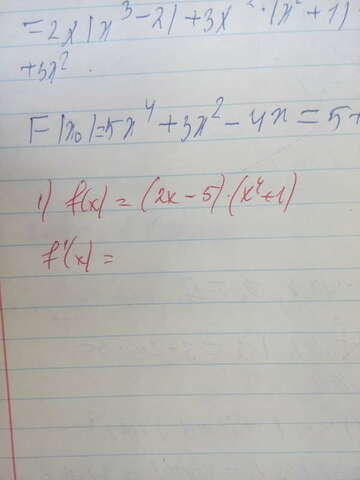 =2x(x³-2)+3x²·(x²+1)
+3x².
F(x₀)=5x⁴+3x²-4x=5+
1) f(x)=(2x-5)·(x⁴+1)
f'(x)=